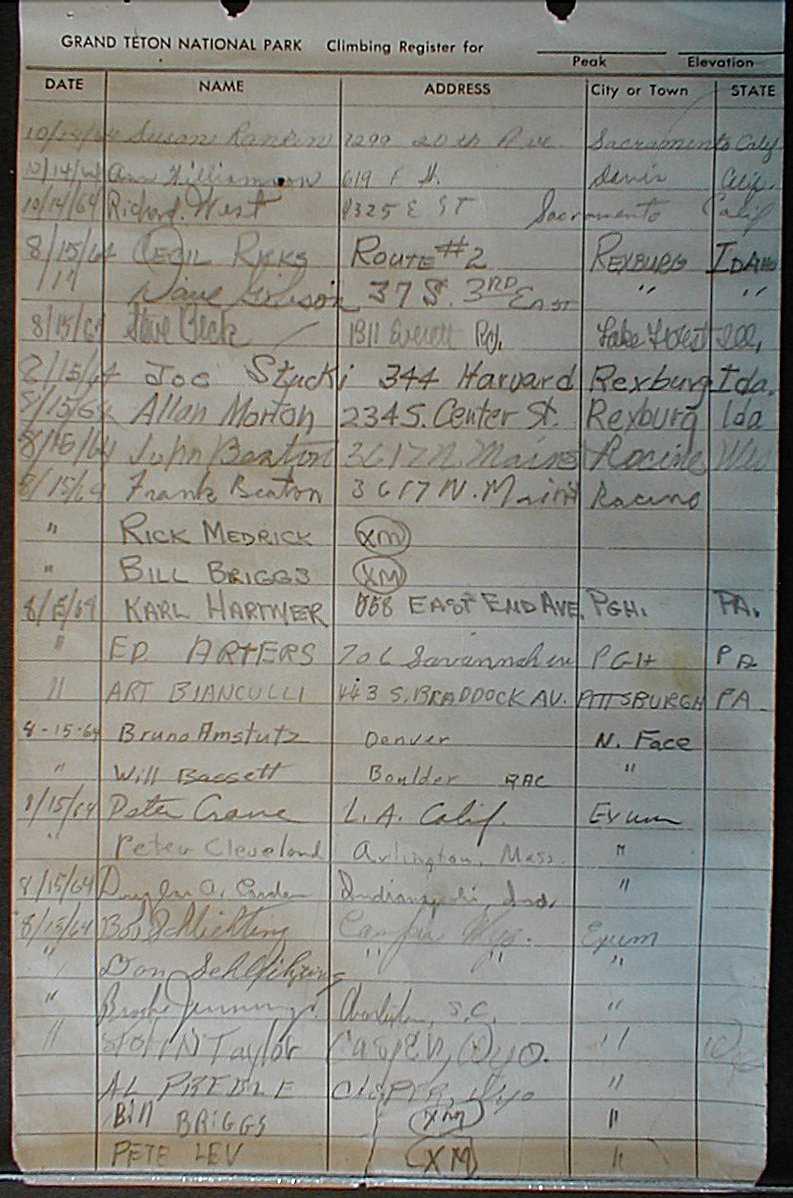 GRAND TETON NATIONAL PARK Climbing Register for
Peak Elevation
DATE NAME ADDRESS City or Town STATE
10/14/64 Susan 20th Ave. Sacramento Calif
10/14/64 Ann Williamson 619 Davis Calif.
10/14/64 Richard West 4325 E ST Sacramento Calif
8/15/64 CECIL RICKS ROUTE #2 REXBURG IDAHO
" Dave 37 S. 3RD EAST " "
8/15/64 Steve Beck 1311 Everett Rd. Lake Forest Ill.
8/15/64 Joe Stucki 344 Harvard Rexburg Ida.
8/15/64 Allan Morton 234 S. Center St. Rexburg Ida
8/15/64 John Beaton 3617 N. Main Racine Wis
8/15/64 Frank Beaton 3617 N. Main Racine
" RICK MEDRICK XM
" BILL BRIGGS XM
8/15/64 KARL HARTNER EAST END AVE. PGH. PA.
" ED ARTERS 706 Savannah PGH PA
" ART BIANCULLI 443 S. BRADDOCK AV. PITTSBURGH PA
8-15-64 Bruno Amstutz Denver N. Face
" Will Bassett Boulder "
8/15/64 Peter Crane L.A. Calif. Exum
" Peter Cleveland Arlington, Mass. "
8/15/64 A. Indianapolis, Ind. "
8/15/64 Bob Schlichting Casper Wyo. Exum
" Don Schlichting " " "
" Jennings Charleston, S.C. "
" Taylor CASPER, Wyo. "
AL PREBLE CASPER, Wyo "
Bill BRIGGS XM "
PETE LEV XM "